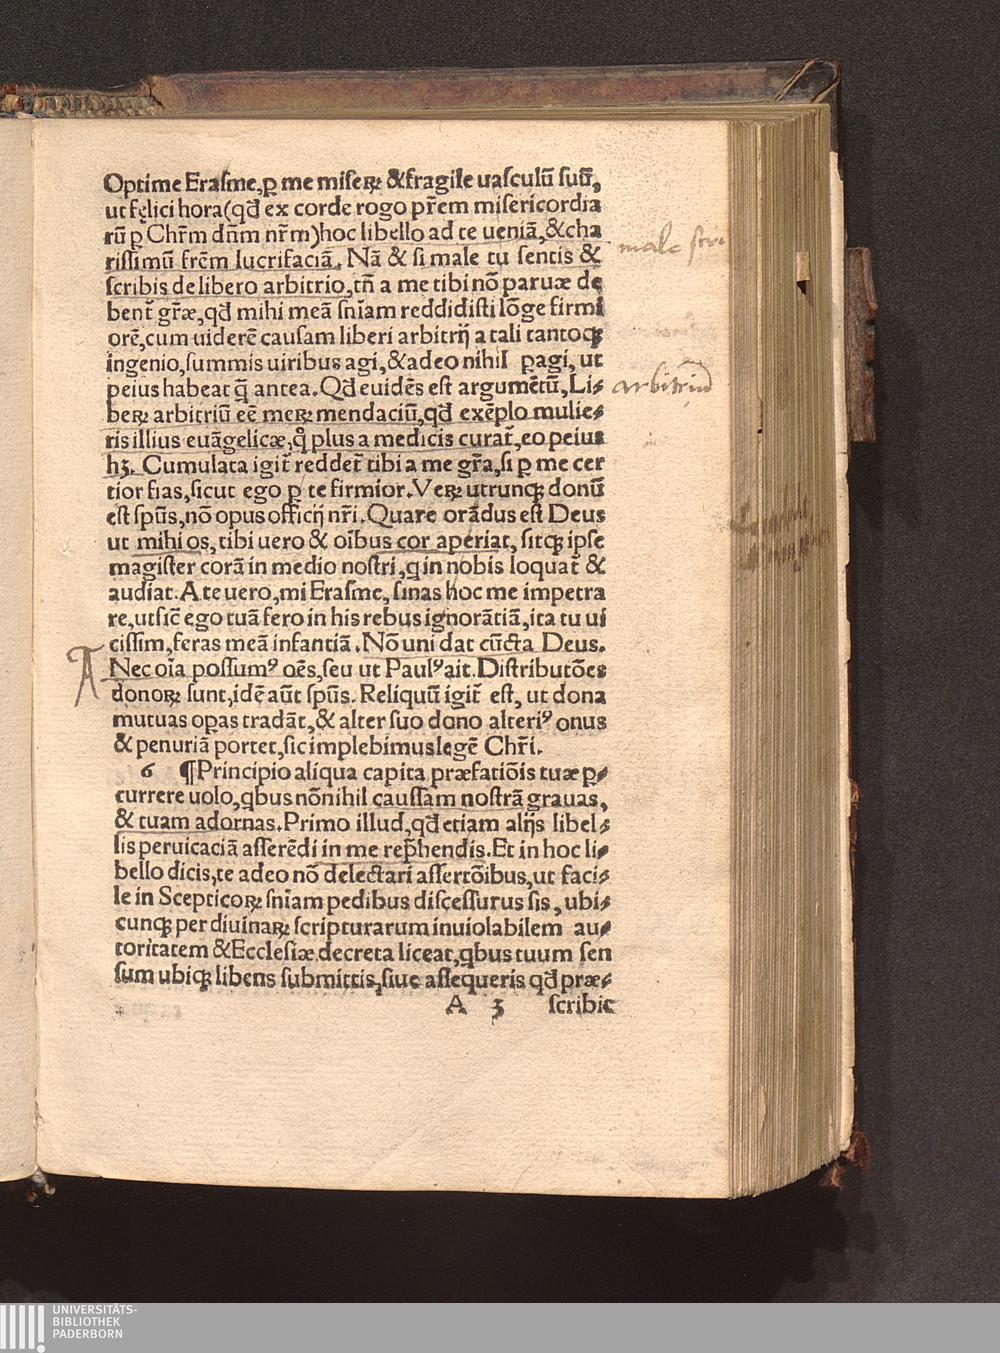 Optime Erasme, ꝑ me miseꝝ & fragile uasculū suū,
ut fęlici hora (qđ ex corde rogo pr̄em misericordia
rū ꝑ Chr̄m dn̄m nr̄m) hoc libello ad te ueniā, & cha
rissimū frēm lucrifaciā. Nā & si male tu sentis &
scribis de libero arbitrio, tn̄ a me tibi nō paruæ de
bent᷑ gr̄æ, qđ mihi meā sn̄iam reddidisti lōge firmi
orē, cum uiderē causam liberi arbitrij a tali tantoqꝫ
ingenio, summis uiribus agi, & adeo nihil ꝑagi, ut
peius habeat q̄ antea. Qđ euidēs est argumētū, Li⸗
beꝝ arbitriū eē meꝝ mendaciū, qđ exēplo mulie⸗
ris illius euāgelicæ, qͦ plus a medicis curat᷑, eo peius
hꝫ. Cumulata igit᷑ reddet᷑ tibi a me gr̄a, si ꝑ me cer
tior fias, sicut ego ꝑ te firmior. Veꝝ utrunqꝫ donū
est spūs, nō opus officij nr̄i. Quare orādus est Deus
ut mihi os, tibi uero & oībus cor aperiat, sitqꝫ ipse
magister corā in medio nostri, q in nobis loquat᷑ &
audiat. A te uero, mi Erasme, sinas hoc me impetra
re, ut sic̄ ego tuā fero in his rebus ignorātiā, ita tu ui
cissim, feras meā infantiā. Nō uni dat cūcta Deus.
Nec oīa possumꝰ oēs, seu ut Paulꝰ ait. Distributōes
donoꝝ sunt, idē aūt spūs. Reliquū igit᷑ est, ut dona
mutuas oꝑas tradāt, & alter suo dono alteriꝰ onus
& penuriā portet, sic implebimus legē Chr̄i.
6 ¶ Principio aliqua capita præfatiōis tuæ ꝑ⸗
currere uolo, qbus nōnihil caussam nostrā grauas,
& tuam adornas. Primo illud, qđ etiam alijs libel⸗
lis peruicaciā asserēdi in me rep̄hendis. Et in hoc li⸗
bello dicis, te adeo nō delectari assertōibus, ut faci⸗
le in Scepticoꝝ sn̄iam pedibus discessurus sis, ubi⸗
cunqꝫ per diuinaꝝ scripturarum inuiolabilem au⸗
toritatem & Ecclesiæ decreta liceat, qbus tuum sen
sum ubiqꝫ libens submittis, siue assequeris qđ præ⸗
A 3 scribit
male
arbitriū
A
UNIVERSITÄTS-
BIBLIOTHEK
PADERBORN